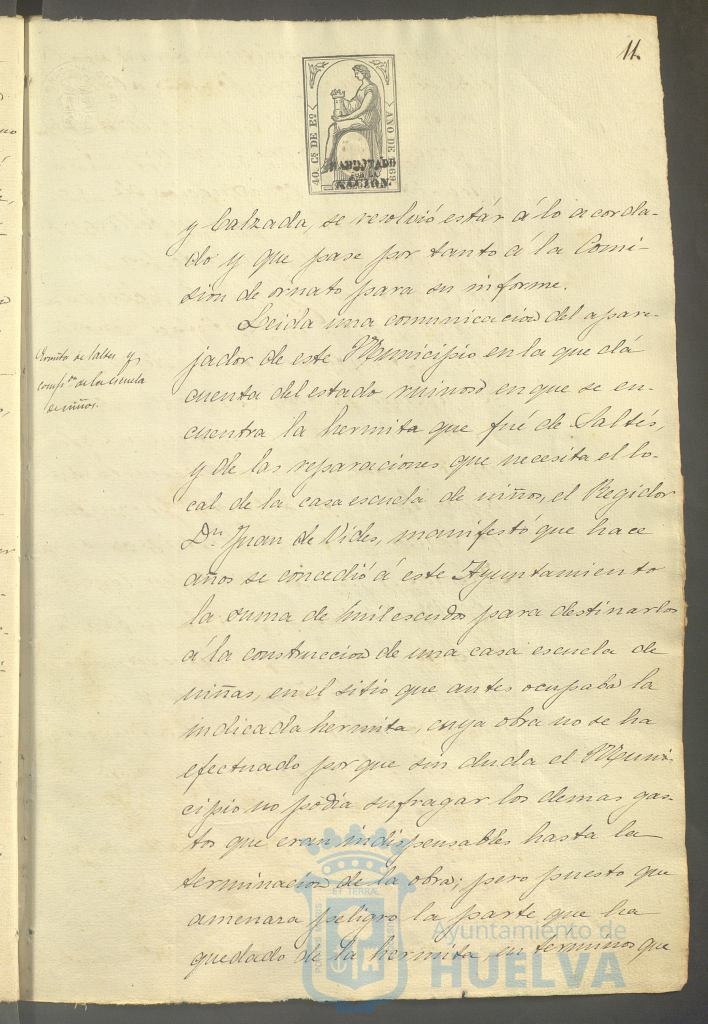 11.
40. Cs DE Eo
AÑO DE 1869.
HABILITADO
POR LA
NACION.
y Calzada, se resolvió estár á lo acorda-
do y que pase por tanto á la Comi-
sion de ornato para su informe.
Leida una comunicacion del apare-
jador de este Municipio en la que dá
cuenta del estado ruinoso en que se en-
cuentra la hermita que fué de Saltés,
y de las reparaciones que necesita el lo-
cal de la casa escuela de niños, el Regidor
Dn. Juan de Vides, manifestó que hace
años se concedió á este Ayuntamiento
la suma de mil escudos para destinarlos
á la construccion de una casa escuela de
niñas, en el sitio que antes ocupaba la
indicada hermita, cuya obra no se ha
efectuado por que sin duda el Muni-
cipio no podia sufragar los demas gas-
tos que eran indispensables hasta la
terminacion de la obra; pero puesto que
amenaza peligro la parte que ha
quedado de la hermita, en terminos que
Ermita de Saltes y
compon de la escuela
de niños.
Ayuntamiento de
HUELVA